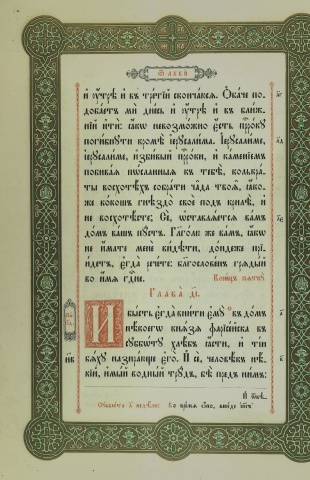 Ѿ лꙋкѝ
и҆ ᲂу҆́трѣ и҆ въ тре́тїй сконча́юсѧ. Ѻ҆ба́че по-
доба́етъ мѝ дне́сь и҆ ᲂу҆́трѣ и҆ въ бли́ж-
нїй и҆тѝ: ꙗ҆́кѡ невозмо́жно є҆́сть прⷪ҇ро́кꙋ
поги́бнꙋти кромѣ̀ і҆ерꙋсали́ма. І҆ерꙋсали́ме,
і҆ерꙋсали́ме, и҆зби́вый прⷪ҇ро́ки, и҆ ка́менїемъ
побива́ѧ по́сланныѧ къ тебѣ̀, колькра́-
ты восхотѣ́хъ собра́ти ча̑да твоѧ̑, ꙗ҆́ко-
же ко́кошъ гнѣздо̀ своѐ под̾ крилѣ̑, и҆
не восхотѣ́сте; Сѐ, ѡ҆ставлѧ́етсѧ ва́мъ
до́мъ ва́шъ пꙋ́стъ. Гл҃ю же ва́мъ, ꙗ҆́кѡ
не и҆́мате менѐ ви́дѣти, до́ндеже прї-
и́детъ, є҆гда̀ рече́те: блгⷭ҇ове́нъ грѧды́й
во и҆́мѧ гдⷭ҇не.
Коне́цъ пѧткꙋ̀
Глава̀ д҃і.
И҆ бы́сть є҆гда̀ вни́ти є҆мꙋ̀ въ до́мъ
нѣ́коегѡ кнѧ́зѧ фарїсе́йска въ
сꙋббѡ́тꙋ хлѣ́бъ ꙗ҆́сти, и҆ ті́и
бѧ́хꙋ назира́юще є҆го̀. И҆ сѐ, человѣ́къ нѣ́-
кїй, и҆мы́й водны́й трꙋ́дъ, бѣ̀ пред̾ ни́мъ: